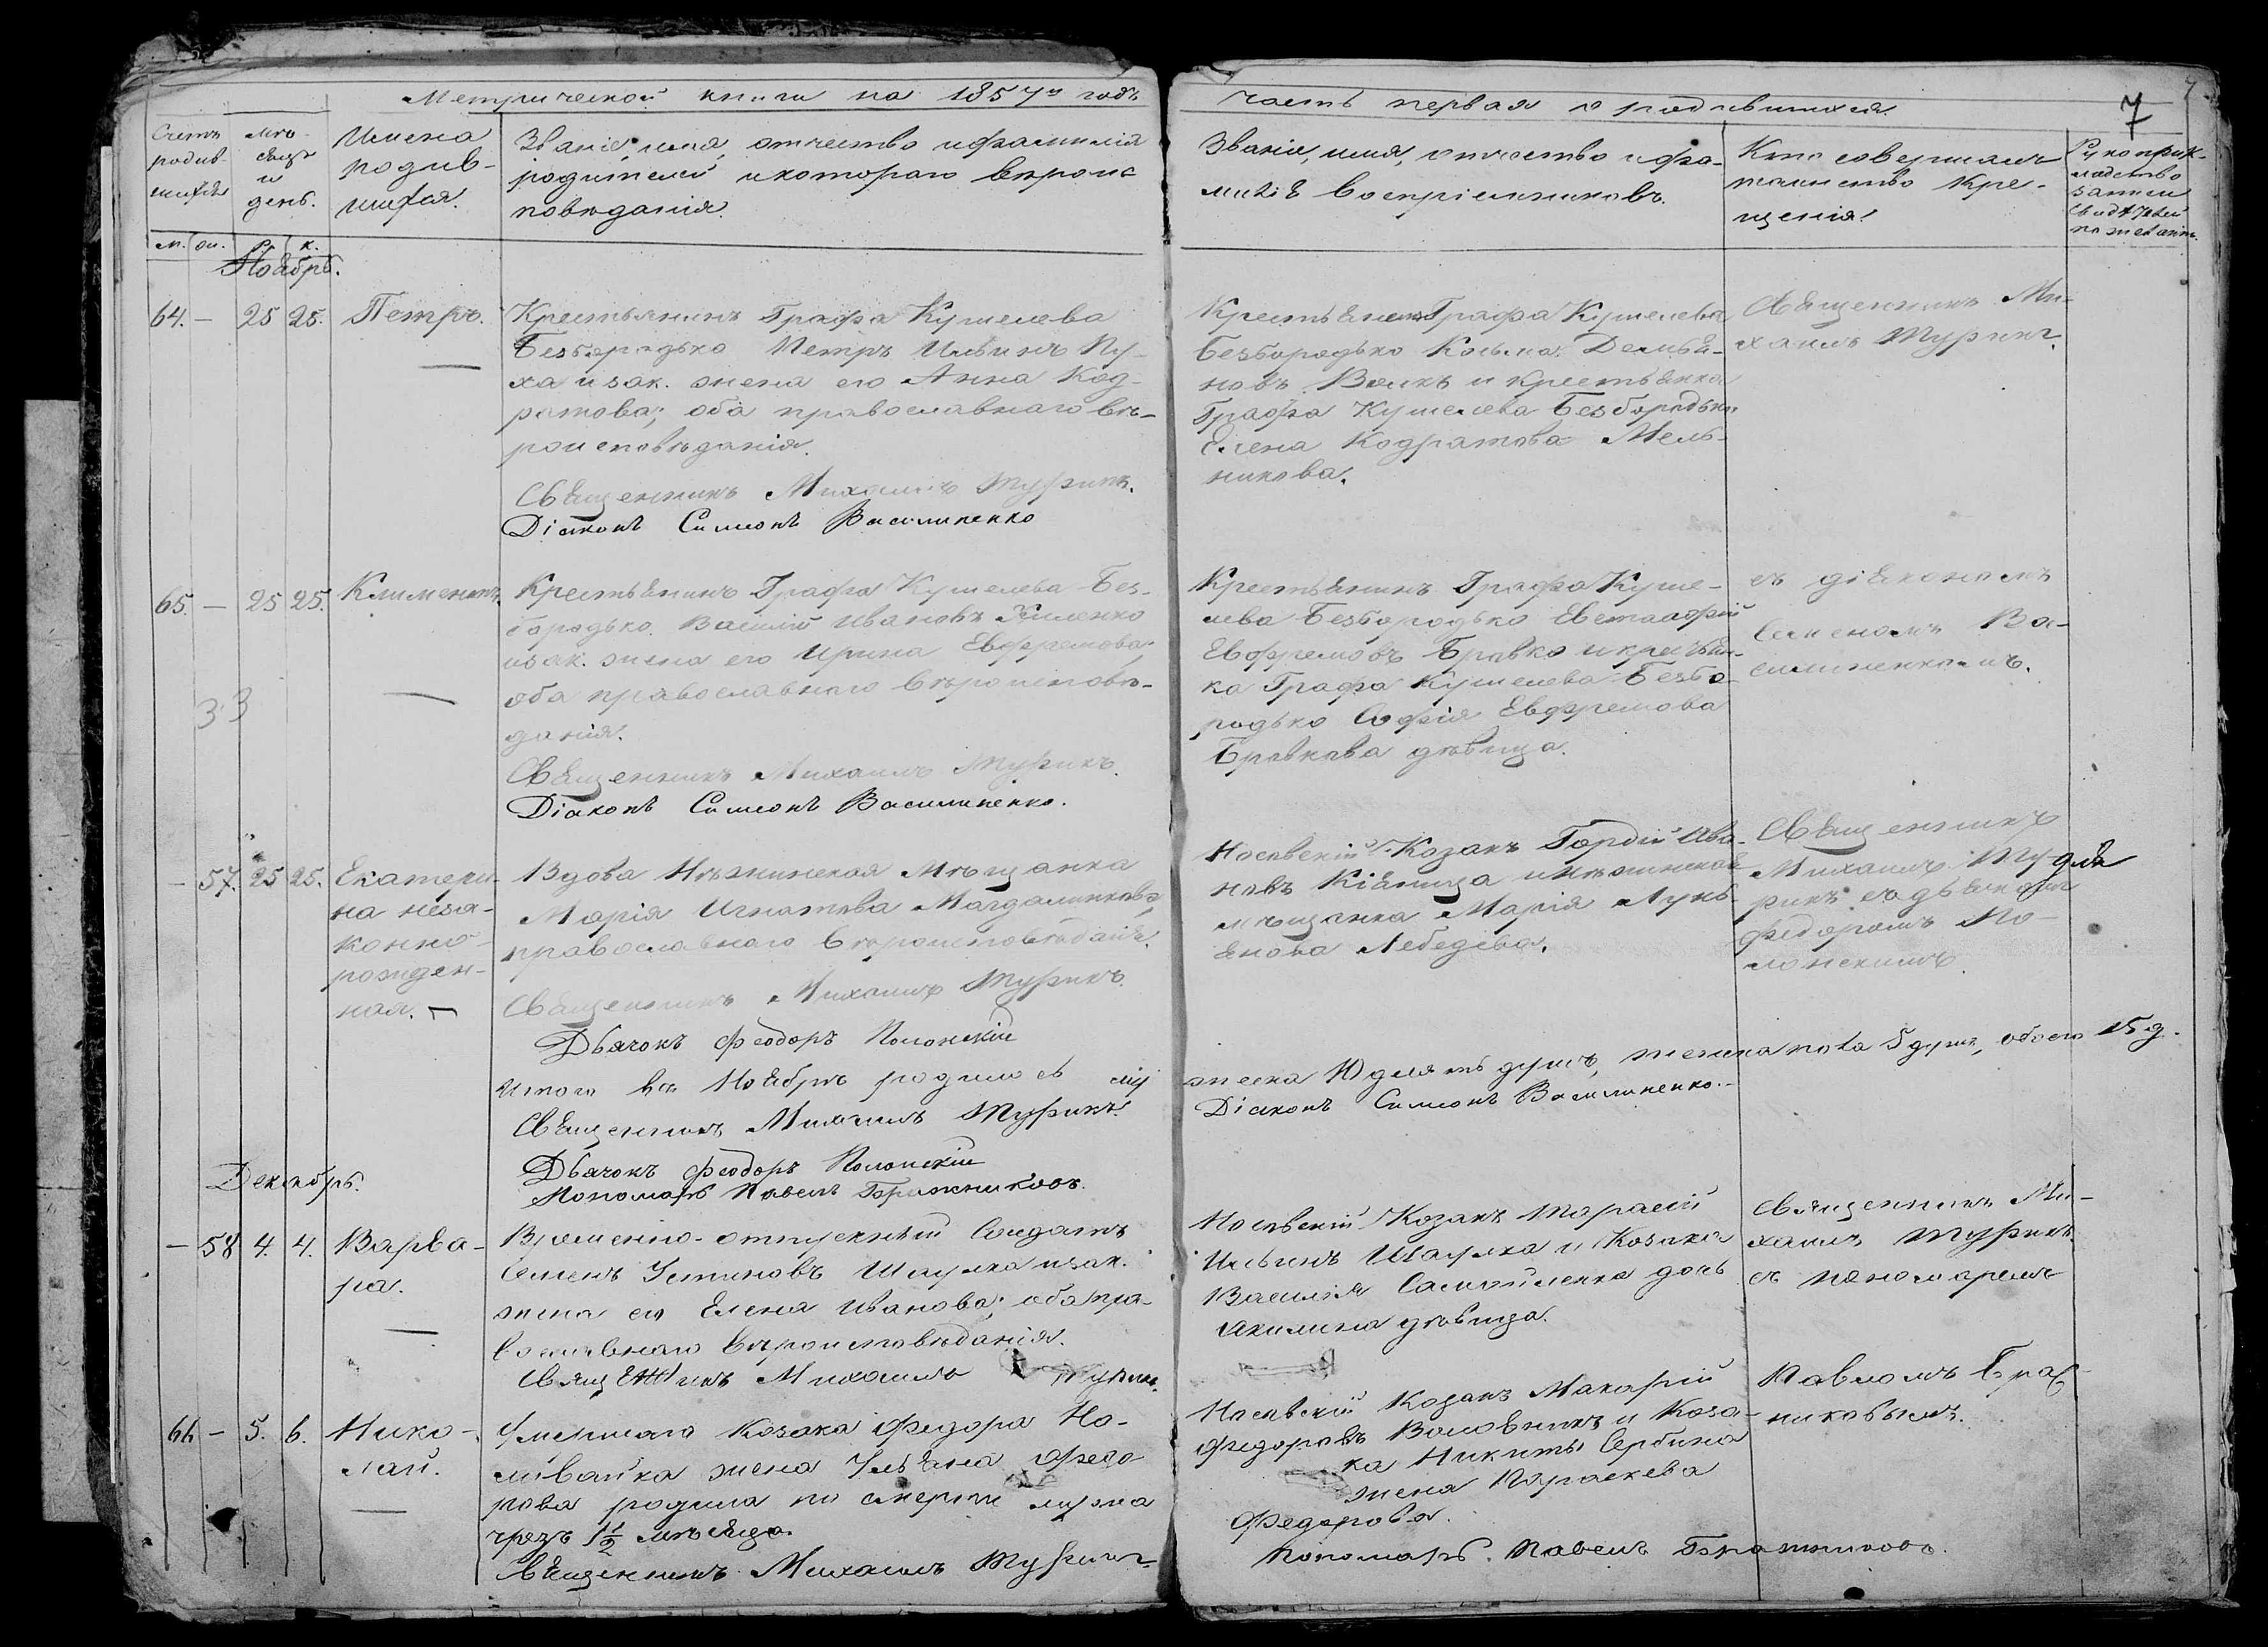 Метрической книги на 1857й годъ
Счетъ родив-шихся
Мѣ-сяцъ и день.
Имена родив-шихся.
Званіе, имя, отчество и фамилія
родителей и котораго вѣроис
повѣданія.
м. ж. р. к.
Ноябрь.
64. — 25 25. Петръ.
Крестьянинъ Графа Кушелева
Безбородько Петръ Ильинъ Пу-
ха и зак. жена его Анна Код-
ратова; оба православнаго вѣ-
роисповѣданія.
Священникъ Михаилъ Турикъ.
Діаконъ Симеонъ Василиненко
65. — 25 25. Климентъ.
Крестьянинъ Графа Кушелева Без-
бородько Василій Ивановъ
и зак. жена его Ирина Евфремова;
оба православнаго вѣроисповѣ-
данія.
33
Священникъ Михаилъ Турикъ.
Діаконъ Симеонъ Василиненко.
— 57. 25 25. Екатери-
на неза-
конно-
рожден-
ная.
Вдова Нѣжинская Мѣщанка
Марія Игнатова Магдалинкова,
православнаго вѣроисповѣданія.
Священникъ Михаилъ Турикъ.
Дьячокъ Феодоръ Полонскій
Итого въ Ноябрѣ родилось му
Священникъ Михаилъ Турикъ.
Дьячокъ Феодоръ Полонскій
Пономарь Павелъ Бражниковъ.
Декабрь.
— 58 4. 4. Варва-
ра.
Временно-отпускный Солдатъ
Семенъ Устиновъ Шаулка и зак.
жена его Елена Иванова; оба пра-
вославнаго вѣроисповѣданія.
Священникъ Михаилъ Турикъ.
66 — 5. 6. Нико-
лай.
Умершаго Козака Федора На-
ливайка жена Ульяна Федо
рова родила по смерти мужа
чрезъ 1½ мѣсяца.
Священникъ Михаилъ Турикъ
часть первая о родившихся.
7
Званіе, имя, отчество и фа-
милія воспріемниковъ.
Кто совершалъ
таинство Кре-
щенія.
Рукоприк-
ладство
записи
свидѣтелей
по желанію.
Крестьянинъ Графа Кушелева
Безбородько Косьма Демья-
новъ Волкъ и крестьянка
Графа Кушелева Безбородька
Елена Кодратова Мель-
никова.
Священникъ Ми-
хаилъ Турикъ.
Крестьянинъ Графа Куше-
лева Безбородько Евстафій
Евфремовъ Бравко и крестьян-
ка Графа Кушелева Безбо-
родько Софія Евфремова
Бравкова дѣвица.
съ діакономъ
Семеномъ Ва-
силиненкомъ.
Носовскій Козакъ Гордій Ива-
новъ Кіяница и Нѣжинская
мѣщанка Марія Лукь-
янова Лебедева.
Священникъ
Михаилъ Ту
рикъ съ дьячкомъ
Федоромъ По-
лонскимъ.
жеска 10 душъ, женска пола 5 душъ, обоего 15 д.
Діаконъ Симеонъ Василиненко.
Носовскій Козакъ Тарасій
Ильинъ Шаулка и Козака
Василія Самойленка дочь
Акилина дѣвица.
Священникъ Ми-
хаилъ Турикъ
съ пономаремъ
Носовскій Козакъ Макарій
Федоровъ Воловикъ и Коза-
ка Никиты Сербина
жена Параскева
Федорова.
Павломъ Браж-
никовымъ.
Пономарь Павелъ Бражниковъ.